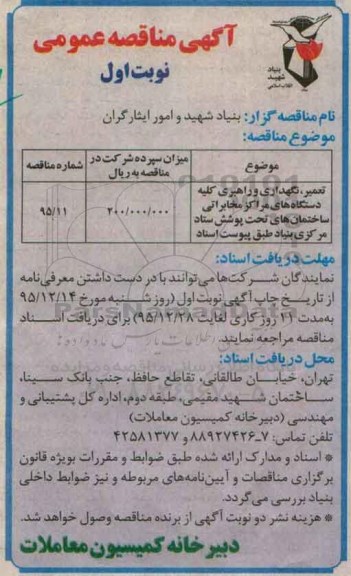 آگهی مناقصه عمومی
نوبت اول
بنیاد
شهید
انقلاب اسلامی
نام مناقصه گزار: بنیاد شهید و امور ایثارگران
موضوع مناقصه:
موضوع	میزان سپرده شرکت در مناقصه به ریال	شماره مناقصه
تعمیر، نگهداری و راهبری کلیه
دستگاه‌های مراکز مخابراتی
ساختمان‌های تحت پوشش ستاد
مرکزی بنیاد طبق پیوست اسناد
۲۰۰/۰۰۰/۰۰۰
۹۵/۱۱
مهلت دریافت اسناد:
نمایندگان شرکت‌ها می‌توانند با در دست داشتن معرفی‌نامه
از تاریخ چاپ آگهی نوبت اول (روز شنبه مورخ ۹۵/۱۲/۱۴
به‌مدت ۱۱ روز کاری لغایت ۹۵/۱۲/۲۸) برای دریافت اسناد
مناقصه مراجعه نمایند.
محل دریافت اسناد:
تهران، خیابان طالقانی، تقاطع حافظ، جنب بانک سینا،
ساختمان شهید مقیمی، طبقه دوم، اداره کل پشتیبانی و
مهندسی (دبیرخانه کمیسیون معاملات)
تلفن تماس: ۷-۸۸۹۲۷۴۲۶ و ۴۲۵۸۱۳۷۷
* اسناد و مدارک ارائه شده طبق ضوابط و مقررات بویژه قانون
برگزاری مناقصات و آیین‌نامه‌های مربوطه و نیز ضوابط داخلی
بنیاد بررسی می‌گردد.
* هزینه نشر دو نوبت آگهی از برنده مناقصه وصول خواهد شد.
دبیرخانه کمیسیون معاملات